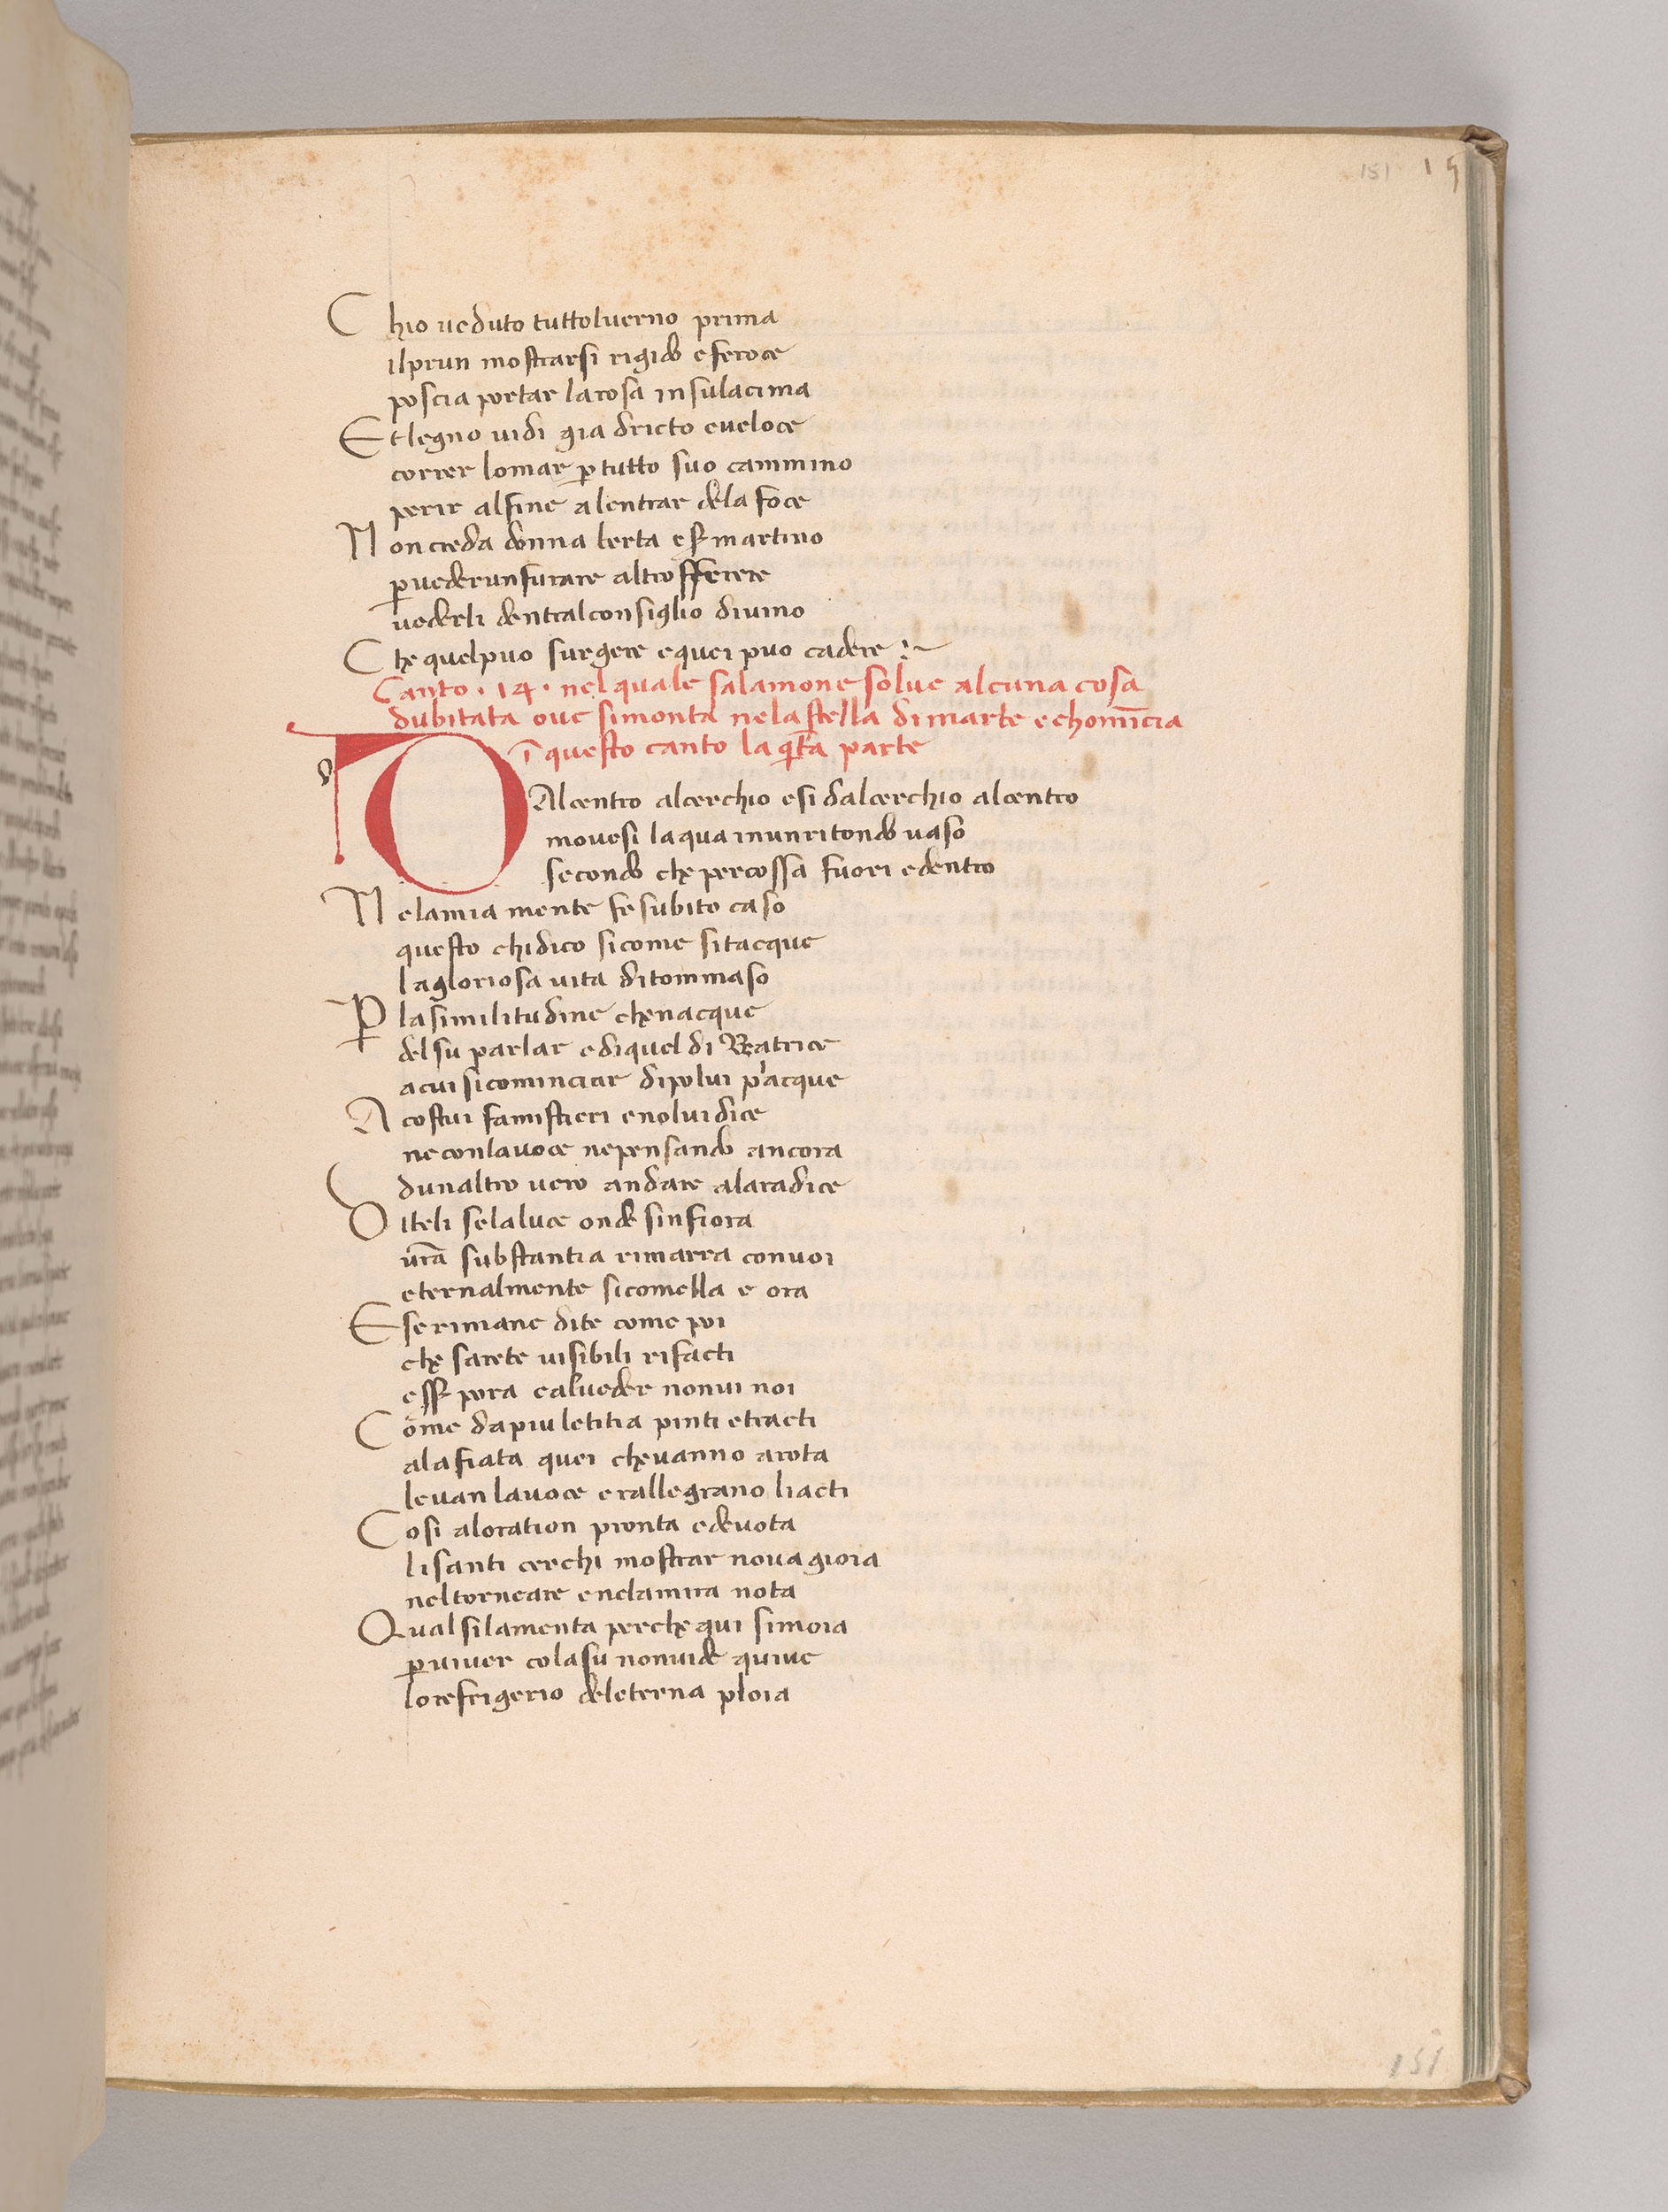 151 15
Chio ueduto tuttoluerno prima
ilprun mostrarsi rigido eferoce
poscia portar larosa insulacima
Et legno uidi gia dricto eueloce
correr lomar p̱ tutto suo cammino
perir alfine alentrar dela foce
Non creda donna berta e ser martino
p̱ uederunfurare altro offerere
uederli dentralconsiglio diuino
Che quelpuo surgere equei puo cadere :~
Canto · 14 · nel quale salamone solue alcuna cosa
dubitata oue simonta nela stella dimarte echomīcia
ī questo canto la q̄rta parte
d
DAlcentro alcerchio esi dalcerchio alcentro
mouesi laqua inunritondo uaso
secondo che percossa fuori edentro
Nelamia mente fe subito caso
questo chidico sicome sitacque
lagloriosa uita ditommaso
P̱ lasimilitudine chenacque
del su parlar ediquel di Beatrice
acui sicominciar dipolui piacque
Acostui famistieri enolui dice
neconlauoce nepensando ancora
dunaltro uero andare alaradice
Diteli selaluce onde sinfiora
ura substantia rimarra conuoi
eternalmente sicomella e ora
Eserimane dite come poi
che sarete uisibili rifacti
esser pora calueder nonui noi
Come dapiu letitia pinti etracti
alafiata quei cheuanno arota
leuan lauoce erallegrano liacti
Cosi aloration pronta edeuota
lisanti cerchi mostrar nouagioia
neltorneare enelamira nota
Qual silamenta perche qui simoia
p̱ uiuer colasu nonuide quiue
lorefrigerio deleterna ploia
151